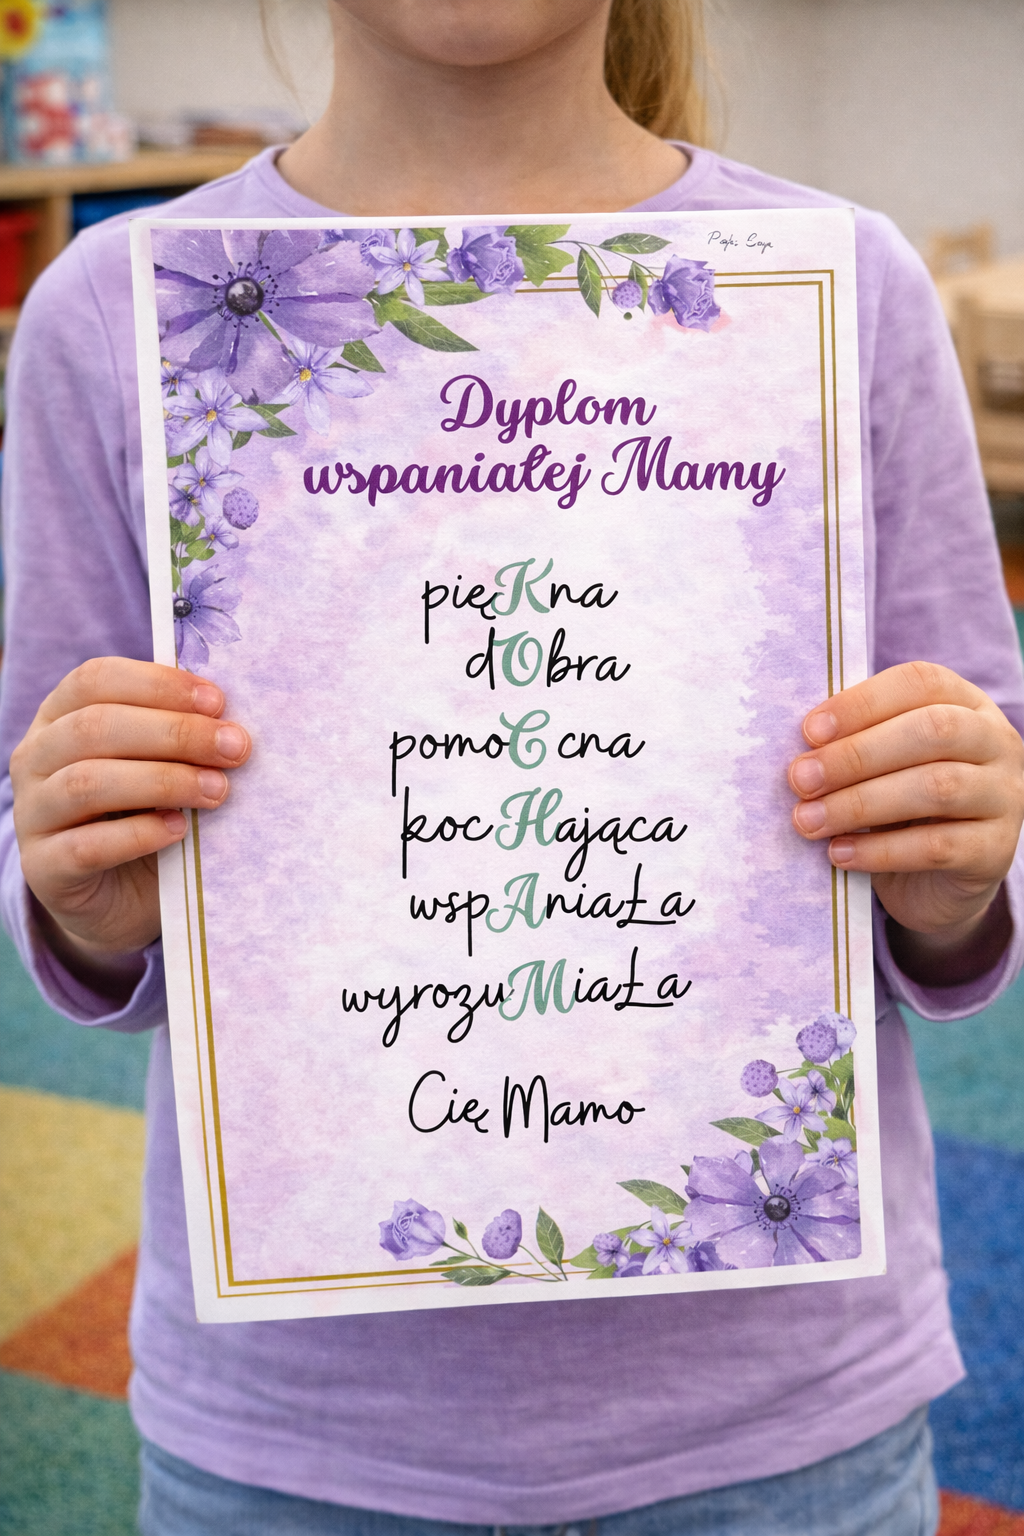 Dyplom
wspaniałej Mamy
pięKna
dObra
pomoC cna
kocHająca
wspAniaŁa
wyrozuMiaŁa
Cię Mamo